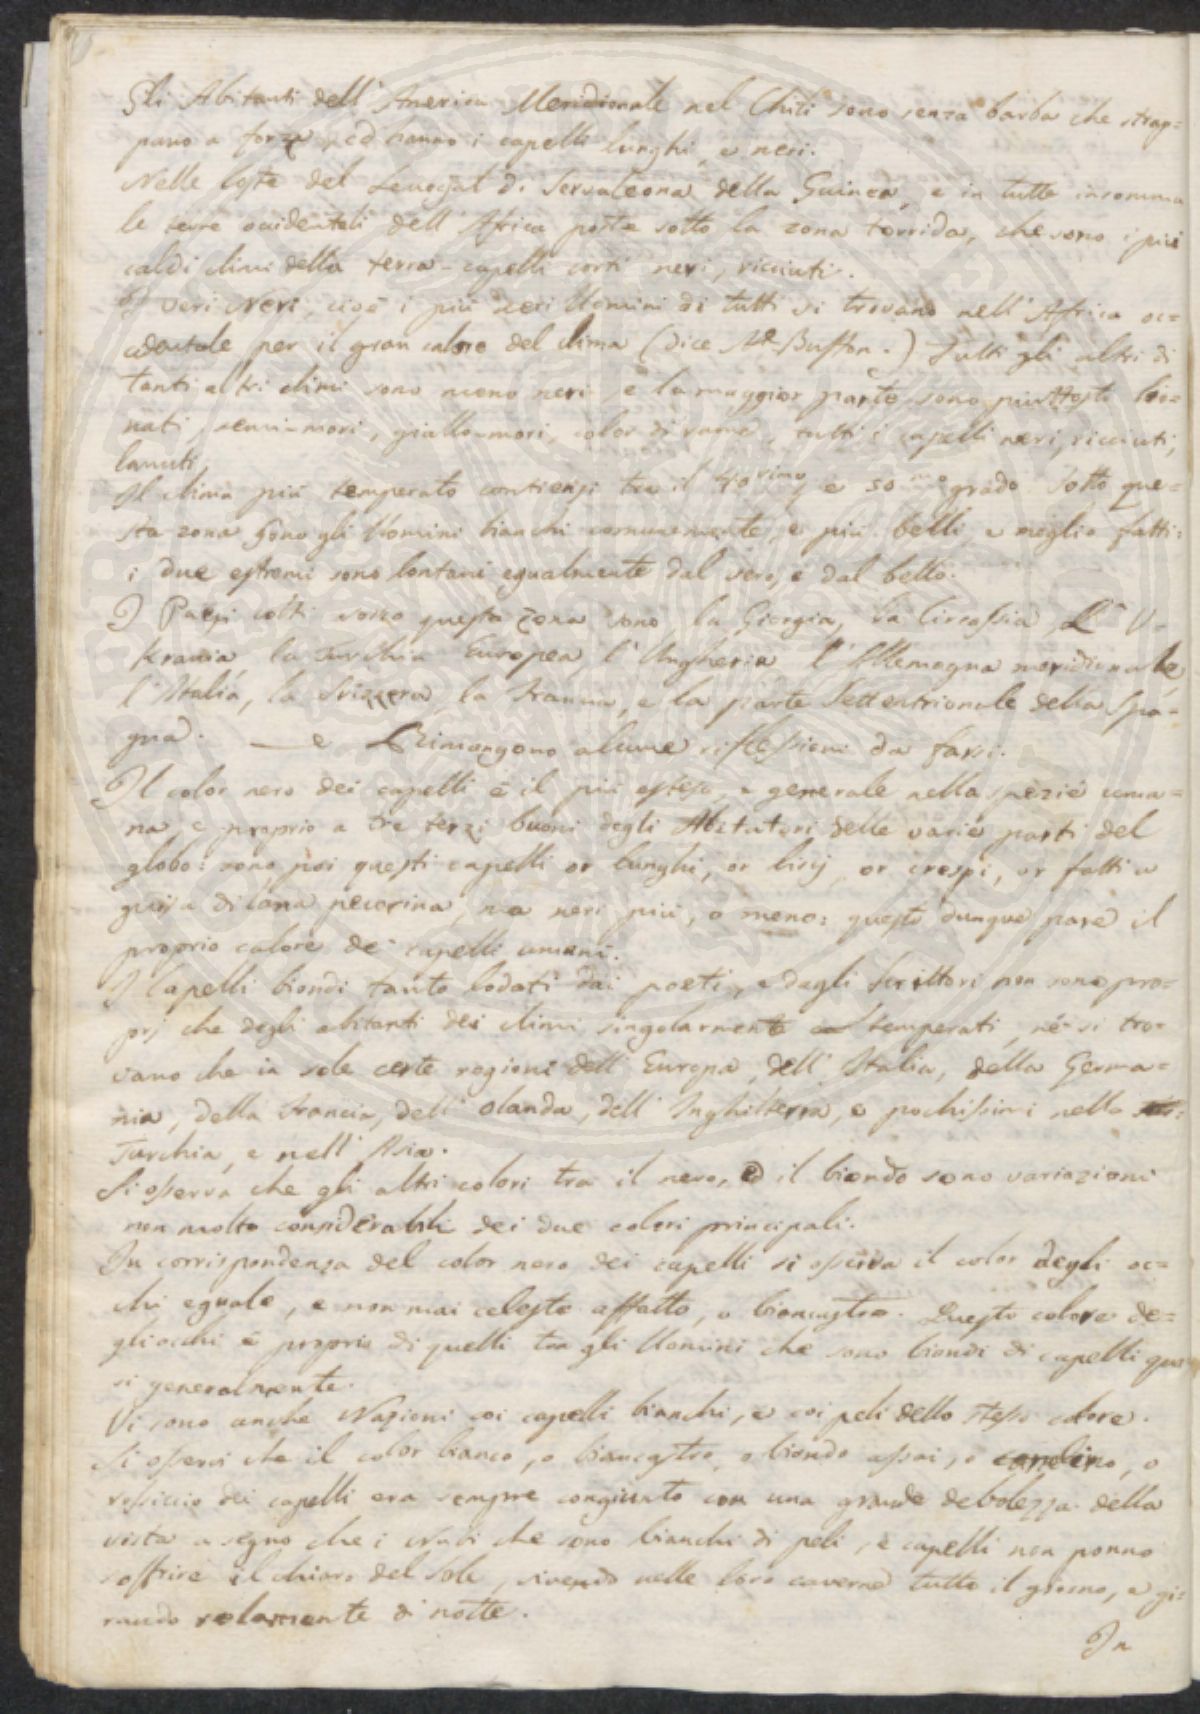 Gli Abitanti dell'America Meridionale nel Chili sono senza barba che strap=
pano a forza, ed hanno i capelli lunghi, e neri.
Nelle Coste del Senegal di Servaleona della Guinea, e in tutte insomma
le terre occidentali dell'Africa poste sotto la zona torrida, che sono i più
caldi climi della terra - capelli corti neri, ricciuti.
I veri Neri, cioè i più neri Uomini di tutti si trovano nell'Africa oc=
cidentale per il gran calore del clima (dice Mr Buffon.) Tutti gli altri di
tanti altri climi sono meno neri, e la maggior parte sono piuttosto bro=
nati, semi-mori, giallo-mori, color di rame, tutti i capelli neri, ricciuti,
lanuti.
Il clima più temperato contiensi tra il 40 e 50 grado. Sotto que=
sta zona sono gli Uomini bianchi comunemente, e più belli, e meglio fatti:
i due estremi sono lontani egualmente dal vero, e dal bello.
I Paesi colti sotto questa zona sono la Giorgia, la Circassia, L'U=
krania, la Turchia Europea, l'Ungheria, l'Allemagna meridionale,
l'Italia, la Svizzera, la Francia, e la parte Settentrionale della Spa=
gna. — e Rimangono alcune riflessioni da farsi.
Il color nero dei capelli è il più esteso, e generale nella spezie uma=
na, e proprio a tre terzi buoni degli Abitatori delle varie parti del
globo: sono poi questi capelli or lunghi, or lisij, or crespi, or fatti a
guisa di lana pecorina, ma neri più, o meno: questo dunque pare il
proprio colore de' capelli umani.
I Capelli biondi tanto lodati dai poeti, e dagli Scrittori non sono pro=
prj che degli abitanti dei climi singolarmente temperati, né si tro=
vano che in sole certe regioni dell'Europa, dell'Italia, della Germa=
nia, della Francia, dell'Olanda, dell'Inghilterra, e pochissimi nella
Turchia, e nell'Asia.
Si osserva che gli altri colori tra il nero, ed il biondo sono variazioni
non molto considerabili dei due colori principali.
In corrispondenza del color nero dei capelli si osserva il color degli oc=
chi eguale, e non mai celeste affatto, o biancastro. Questo colore de=
gli occhi è proprio di quelli tra gli Uomini che sono biondi di capelli qua
si generalmente.
Vi sono anche Nazioni coi capelli bianchi, e coi peli dello stesso colore.
Si osservi che il color bianco, o biancastro, o biondo assai, o o
rossiccio dei capelli era sempre congiunto con una grande debolezza della
vista a segno che i che sono bianchi di peli, e capelli non ponno
soffrire il chiaro del Sole, vivendo nelle loro caverne tutto il giorno, e gi=
rando solamente di notte.
In